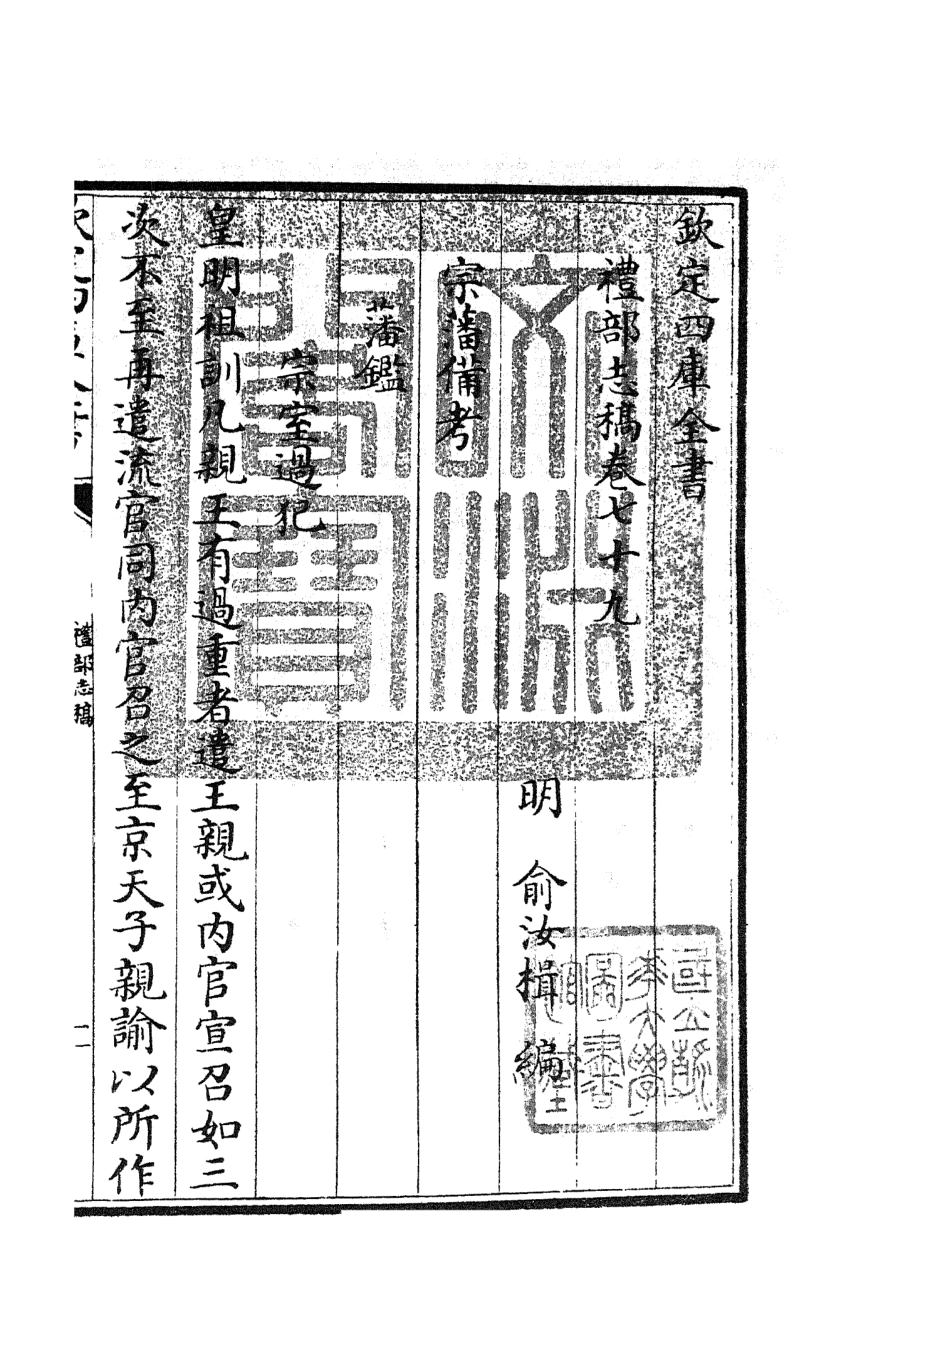 欽定四庫全書
禮部志稿卷七十九
明 俞汝楫 編
宗藩備考
藩鑑
宗室過犯
皇明祖訓凡親王有過重者遣王親或内官宣召如三
次不至再遣流官同内官召之至京天子親諭以所作
禮部志稿
一
文淵閣寶